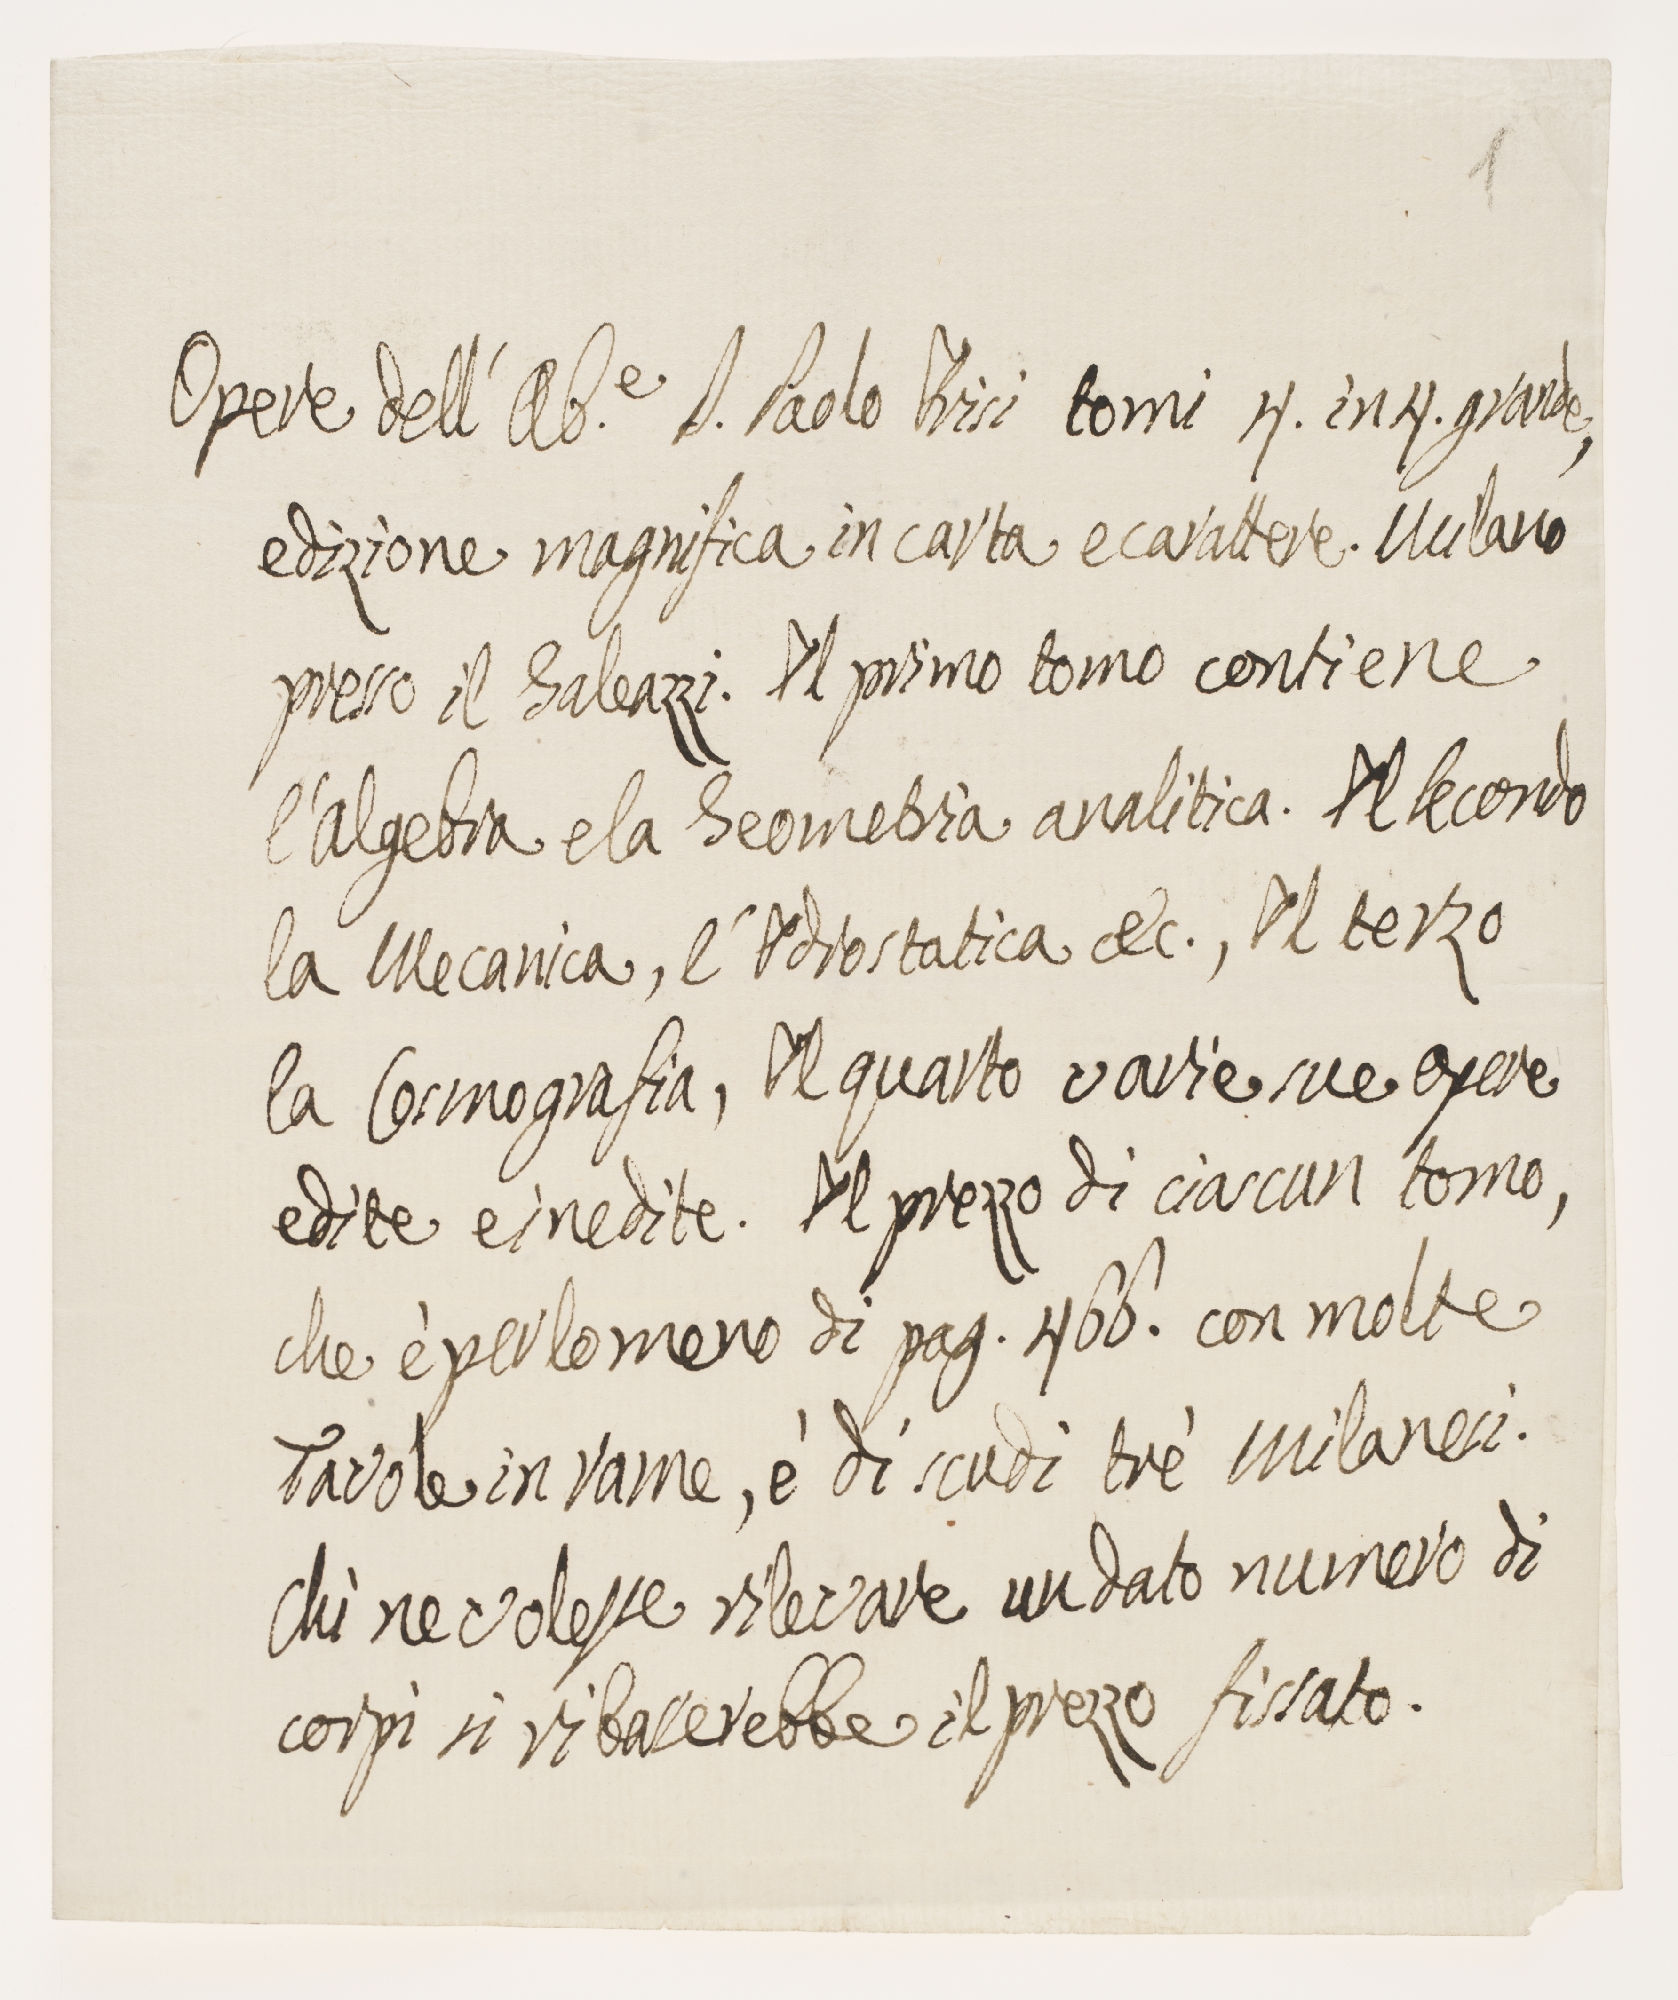 1
Opere dell' Ab.e D. Paolo Frisi tomi 4. in 4. grande,
edizione magnifica in carta e carattere. Milano
presso il Galeazzi. Il primo tomo contiene
l'algebra e la Geometria analitica. Il secondo
la Mecanica, l'Idrostatica &c., Il terzo
la Cosmografia, Il quarto varie sue opere
edite e inedite. Il prezzo di ciascun tomo,
che è perlomeno di pag. 466. con molte
Tavole in rame, è di scudi trè Milanesi.
Chi ne volesse rilevare un dato numero di
corpi si ribasserebbe il prezzo fissato.